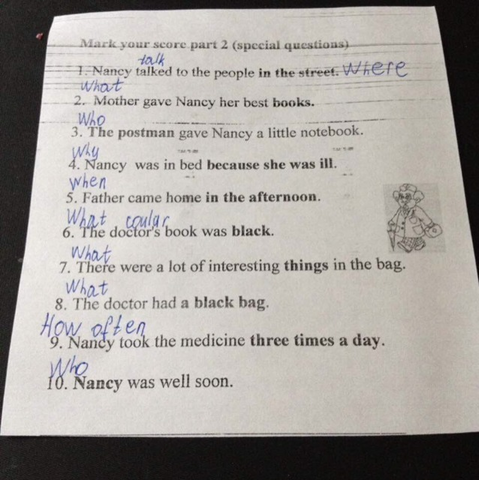 Mark your score part 2 (special questions)
talk
1. Nancy talked to the people in the street. Where
What
2. Mother gave Nancy her best books.
Who
3. The postman gave Nancy a little notebook.
Why
4. Nancy was in bed because she was ill.
When
5. Father came home in the afternoon.
What coular
6. The doctor's book was black.
What
7. There were a lot of interesting things in the bag.
What
8. The doctor had a black bag.
How often
9. Nancy took the medicine three times a day.
Who
10. Nancy was well soon.